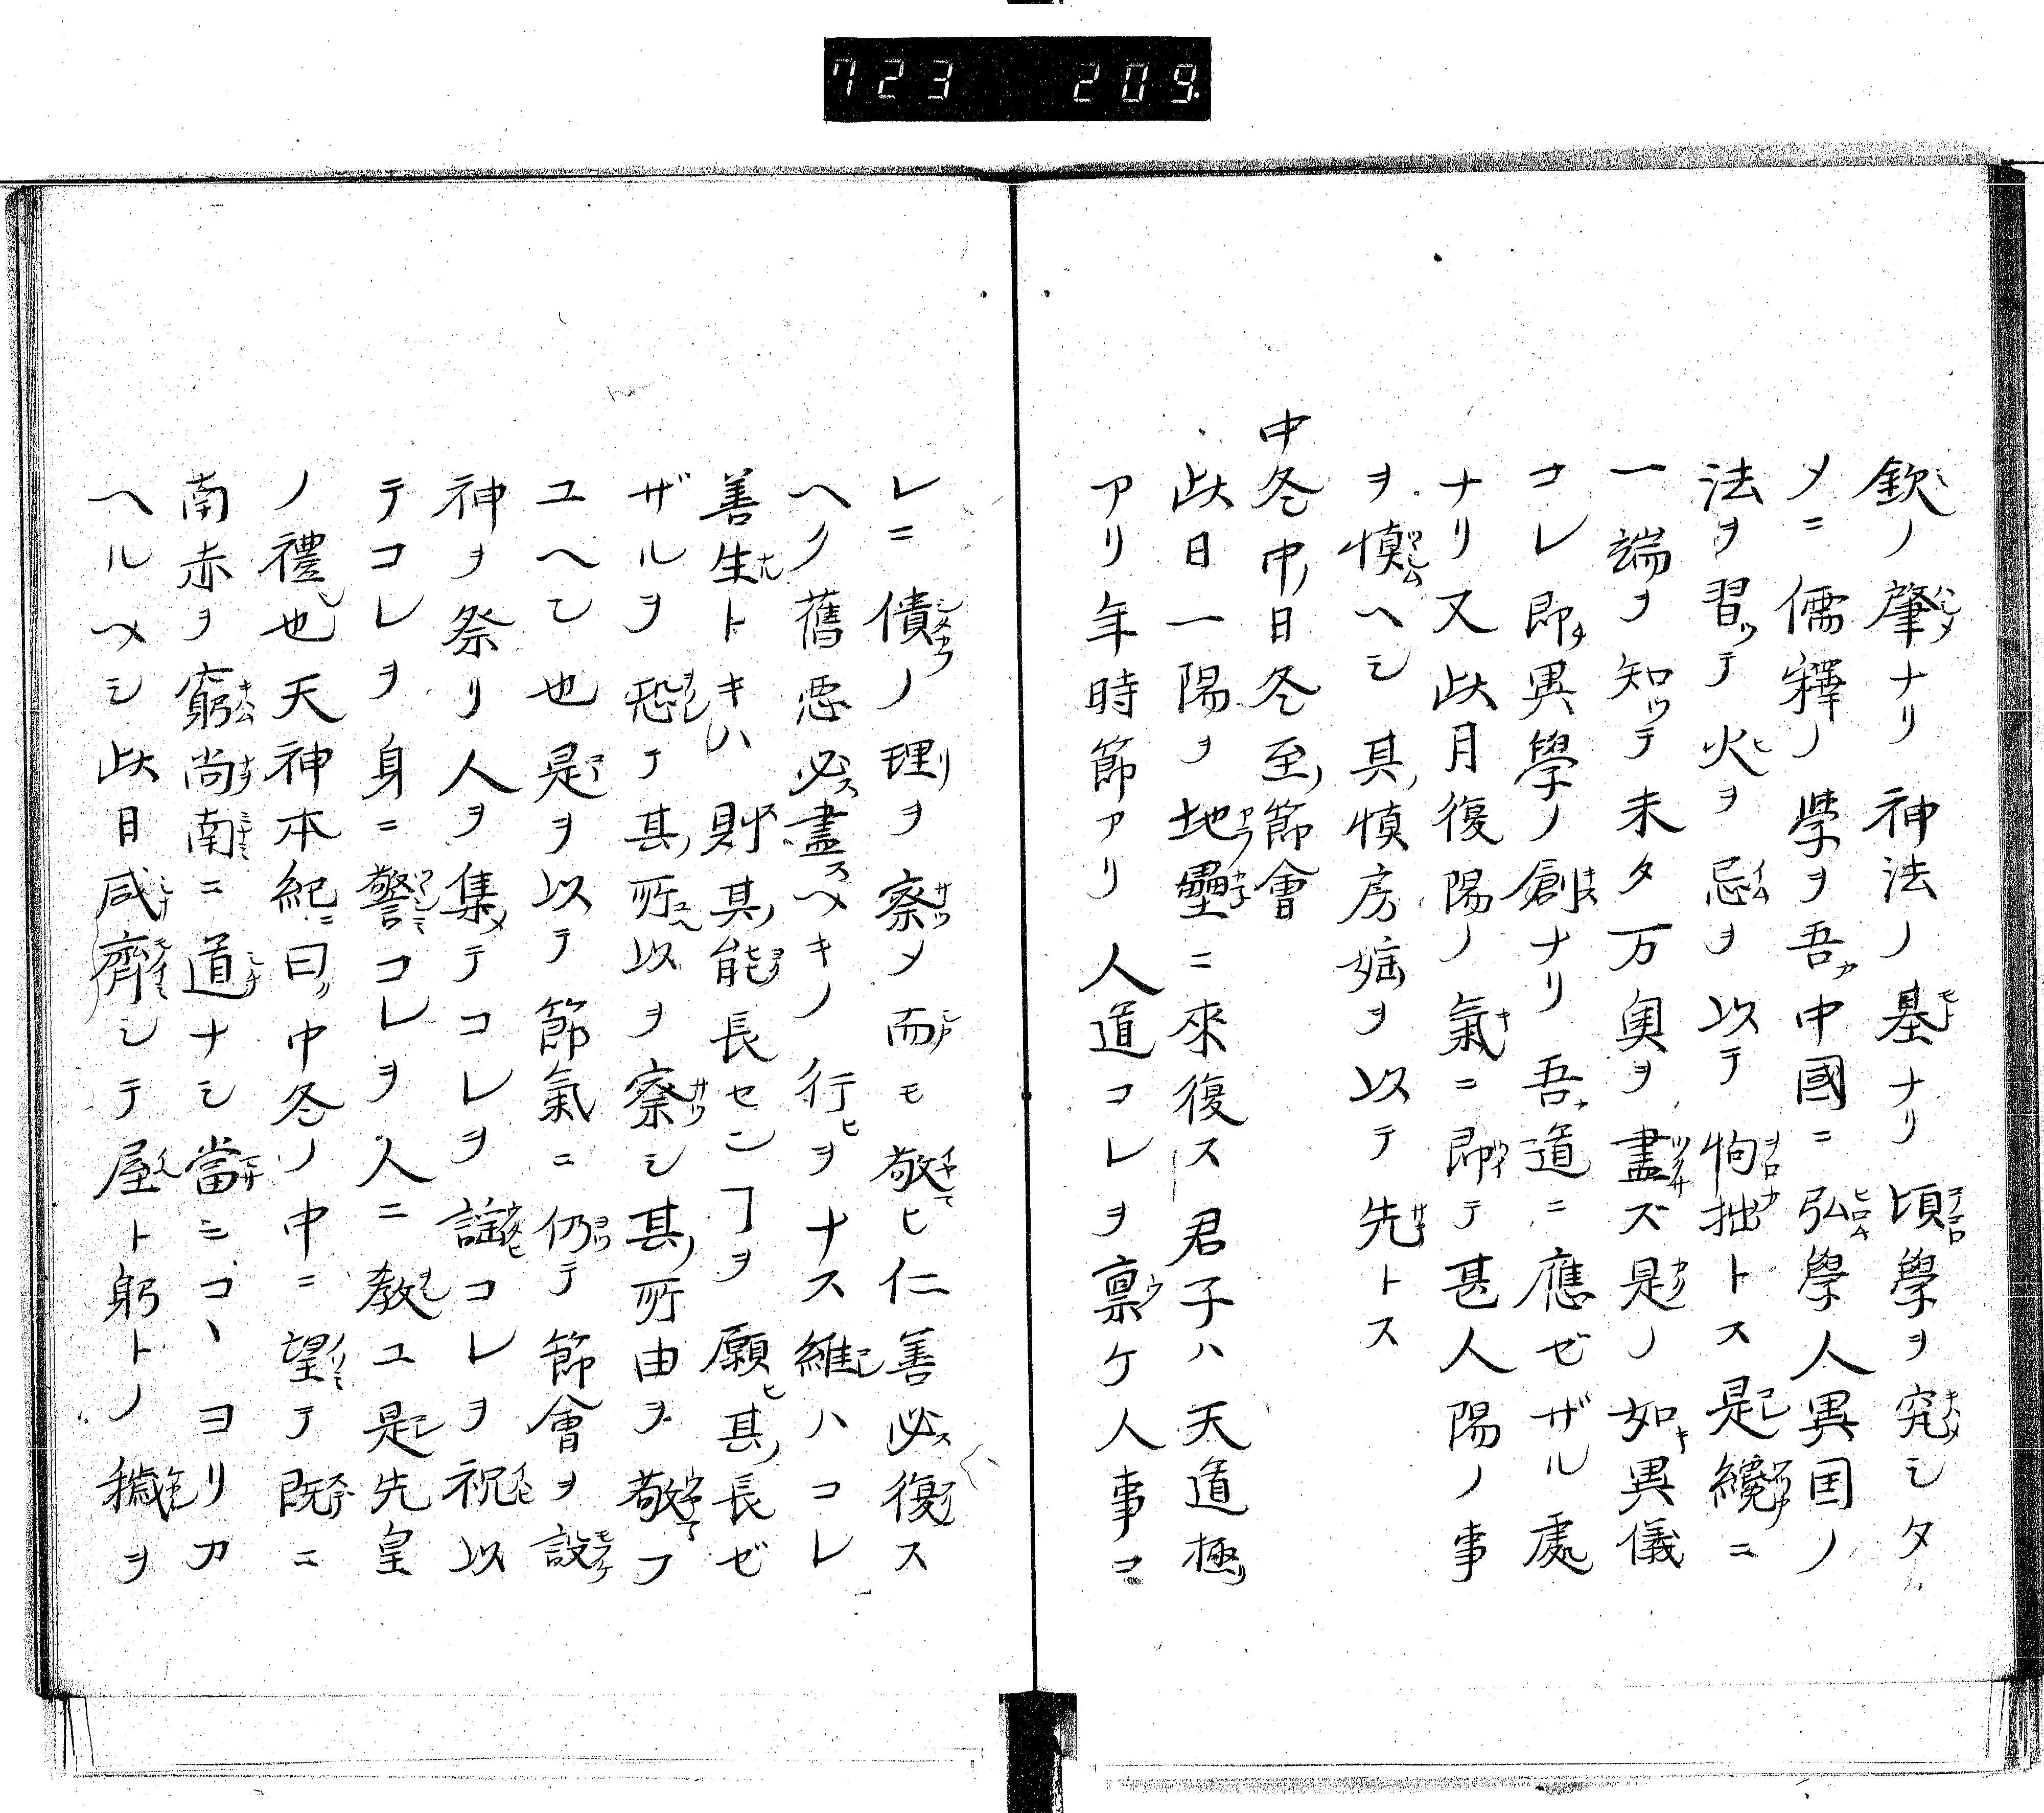 723 209.
欽ノ肇ナリ神法ノ基ナリ頃學ヲ究シタ
メニ儒釋ノ學ヲ吾中國ニ弘學人異国ノ
法ヲ習ツテ火ヲ忌ヲ以テ拘拙トス是纔ニ
一端ヲ知ツテ未タ万奥ヲ盡ズ是ノ如キ異儀
コレ即異學ノ創ナリ吾道ニ應ゼザル處
ナリ又此月復陽ノ氣ニ即テ甚人陽ノ事
ヲ慎ヘシ其慎房姤ヲ以テ先トス
中冬中日冬至節會
此日一陽ヲ地壘ニ來復ス君子ハ天道極
アリ年時節アリ人道コレヲ禀ケ人事コ
レニ債ノ理ヲ察メ而モ敬ヒ仁善必復ス
ヘク舊悪必盡ヘキノ行ヲナス維ハコレ
善生トキハ則其能長センヿヲ願其長ゼ
ザルヲ恐テ其所以ヲ察シ其所由ヲ敬フ
ユヘン也是ヲ以テ節氣ニ仍テ節會ヲ設
神ヲ祭リ人ヲ集テコレヲ謡コレヲ祝以
テコレヲ身ニ警コレヲ人ニ教ユ是先皇
ノ禮也天神本紀ニ曰中冬ノ中ニ望テ既ニ
南赤ヲ窮尚南ニ道ナシ當ニコヽヨリカ
ヘルヘシ此日咸齊シテ屋ト躬トノ穢ヲ